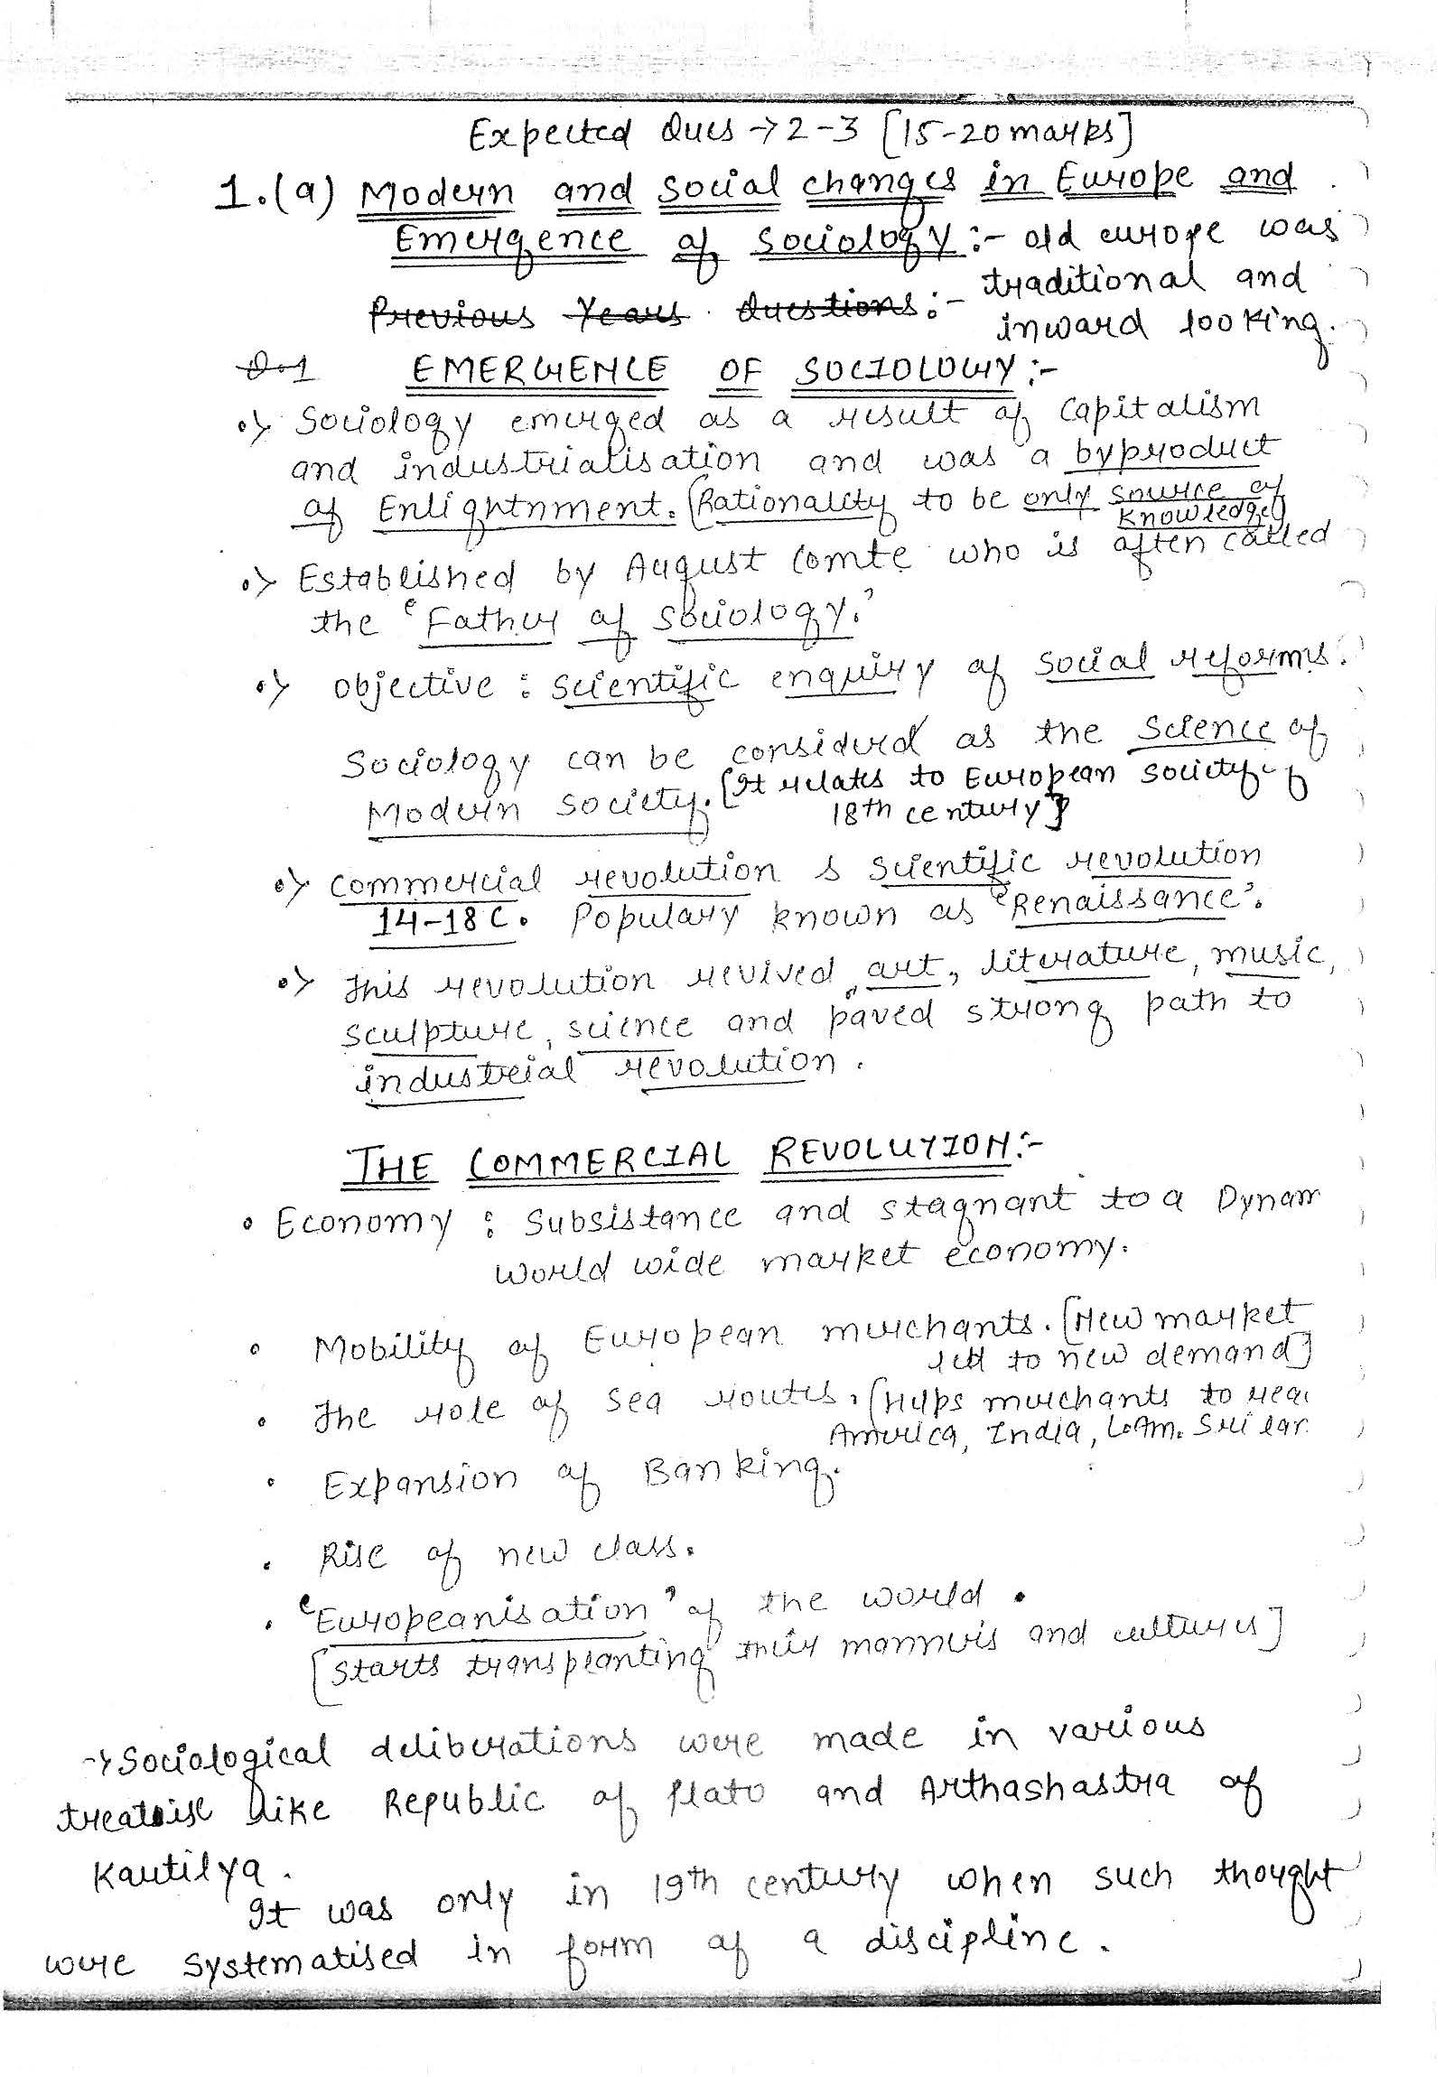 Expected Ques → 2-3 [15-20 marks]
1.(a) Modern and social changes in Europe and
Emergence of Sociology :- old europe was
traditional and
Previous Years Questions :- inward looking.
Q.1 EMERGENCE OF SOCIOLOGY :-
Sociology emerged as a result of capitalism
and industrialisation and was a byproduct
of Enlightnment. [Rationality to be only source of
knowledge]
Established by August Comte who is often called
the 'Father of Sociology.'
Objective : scientific enquiry of social reforms.
Sociology can be considerd as the science of
Modern society. [It relates to European society of
18th century]
Commercial revolution & scientific revolution
14-18 C. Populary known as 'Renaissance'.
This revolution revived art, literature, music,
sculpture, science and paved strong path to
industrial revolution.
THE COMMERCIAL REVOLUTION :-
• Economy : Subsistance and stagnant to a Dynam
world wide market economy.
• Mobility of European merchants. [New market
led to new demand]
• The role of sea routes. [Helps merchants to rea
America, India, L.Am. Sri lan
• Expansion of Banking.
• Rise of new class.
• 'Europeanisation' of the world.
[starts transplanting their manners and cultures]
→ Sociological deliberations were made in various
treatise like Republic of Plato and Arthashastra of
Kautilya.
It was only in 19th century when such thought
were systematised in form of a discipline.